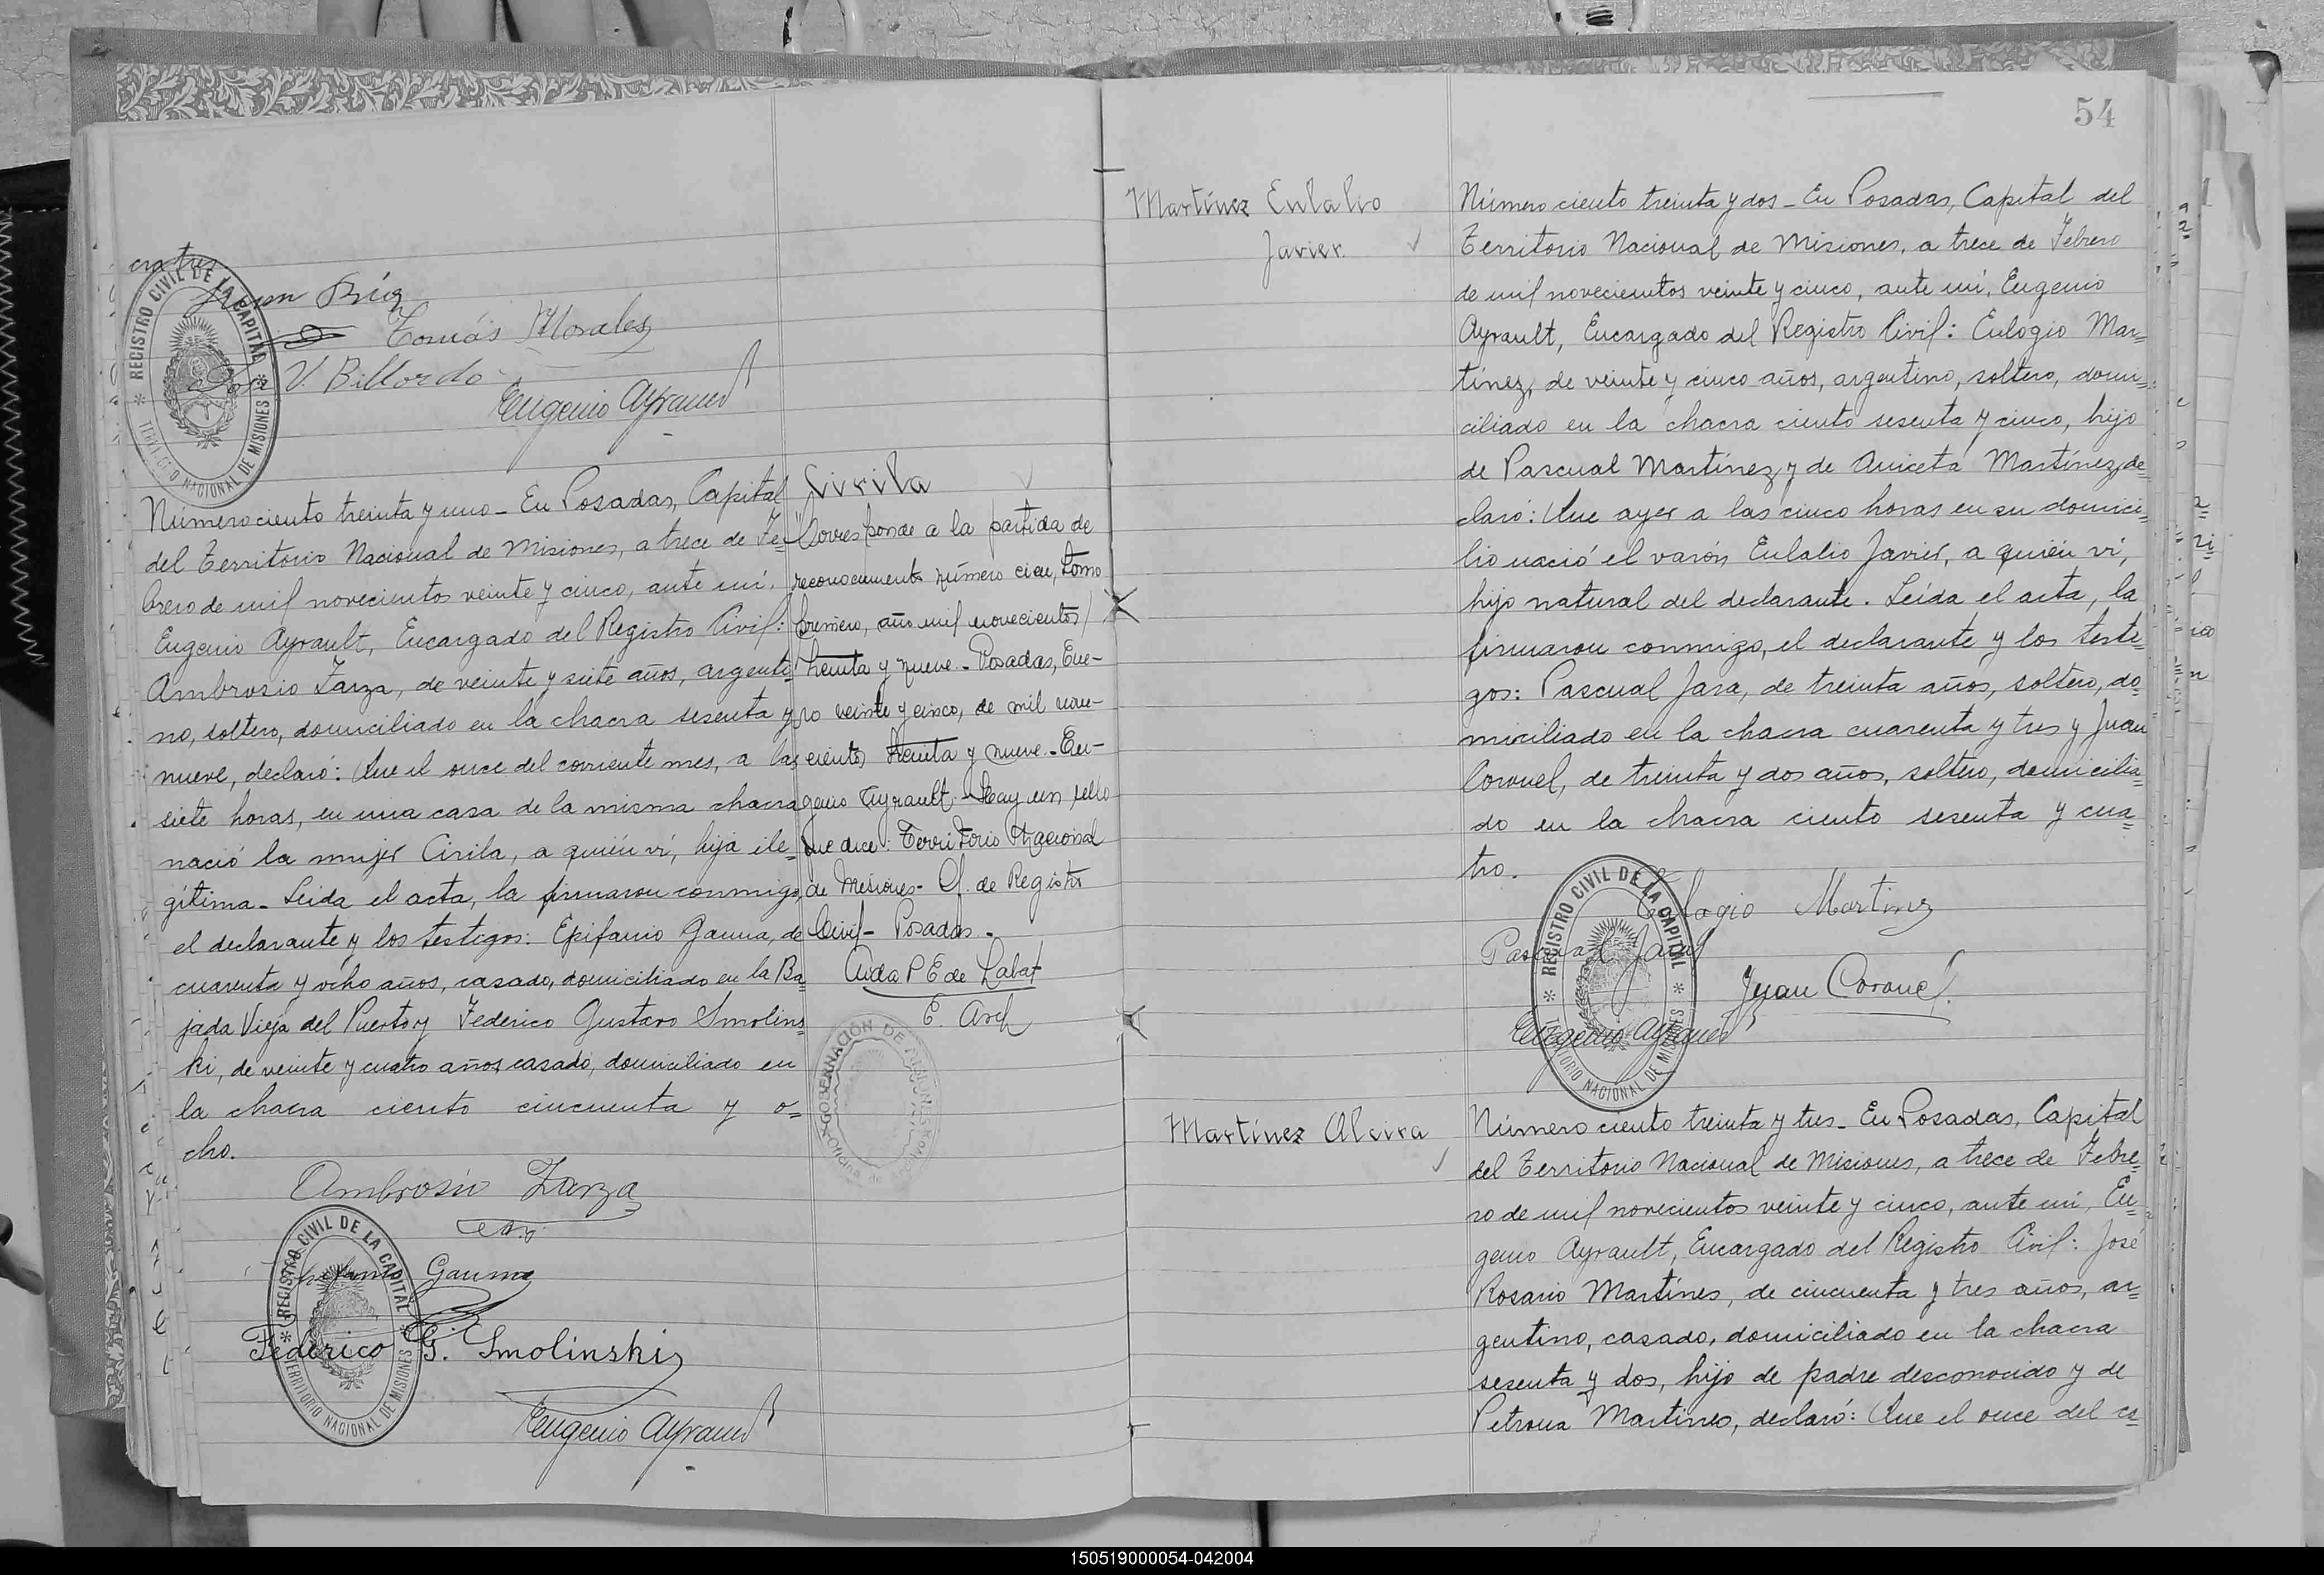 cra tres
Juan Ríos
Tomás Morales
José V. Billordo
Eugenio Ayrault
REGISTRO CIVIL DE LA CAPITAL
TERRITORIO NACIONAL DE MISIONES
Número ciento treinta y uno_ En Posadas, Capital
del Territorio Nacional de Misiones, a trece de Fe=
brero de mil novecientos veinte y cinco, ante mí,
Eugenio Ayrault, Encargado del Registro Civil:
Ambrosio Zarza, de veinte y siete años, argenti=
no, soltero, domiciliado en la chacra sesenta y
nueve, declaró: Que el once del corriente mes, a las
siete horas, en una casa de la misma chacra
nació la mujer Cirila, a quién ví, hija ile=
gítima_ Leída el acta, la firmaron conmigo,
el declarante y los testigos: Epifanio Gauna, de
cuarenta y ocho años, casado, domiciliado en la Ba=
jada Vieja del Puerto y Federico Gustavo Smolins=
ki, de veinte y cuatro años, casado, domiciliado en
la chacra ciento cincuenta y o=
cho.
Ambrosio Zarza
Epifanio Gauna
Federico G. Smolinski
Eugenio Ayrault
REGISTRO CIVIL DE LA CAPITAL
TERRITORIO NACIONAL DE MISIONES
Cirila
"Corresponde a la partida de
reconocimiento número cien, tomo
primero, año mil novecientos
treinta y nueve_ Posadas, Ene-
ro veinte y cinco, de mil nove-
cientos treinta y nueve_ Eu-
genio Ayrault_ Hay un sello
que dice: Territorio Nacional
de Misiones- Of. de Registro
Civil- Posadas-
Aida P E de Labat
E. Arch
GOBERNACIÓN DE MISIONES
54
Martínez Eulalio
Javier
Número ciento treinta y dos_ En Posadas, Capital del
Territorio Nacional de Misiones, a trece de Febrero
de mil novecientos veinte y cinco, ante mí, Eugenio
Ayrault, Encargado del Registro Civil: Eulogio Mar=
tínez, de veinte y cinco años, argentino, soltero, domi=
ciliado en la chacra ciento sesenta y cinco, hijo
de Pascual Martínez y de Aniceta Martínez, de=
claró: Que ayer a las cinco horas en su domici=
lio nació el varón Eulalio Javier, a quién ví,
hijo natural del declarante. Leída el acta, la
firmaron conmigo, el declarante y los testi=
gos: Pascual Jara, de treinta años, soltero, do=
miciliado en la chacra cuarenta y tres y Juan
Coronel, de treinta y dos años, soltero, domicilia=
do en la chacra ciento sesenta y cua=
tro.
Eulogio Martinez
Pascual Jara
Juan Coronel
Eugenio Ayrault
REGISTRO CIVIL DE LA CAPITAL
TERRITORIO NACIONAL DE MISIONES
Martínez Alcira
Número ciento treinta y tres_ En Posadas, Capital
del Territorio Nacional de Misiones, a trece de Febre=
ro de mil novecientos veinte y cinco, ante mí, Eu=
genio Ayrault, Encargado del Registro Civil: José
Rosario Martínes, de cincuenta y tres años, ar=
gentino, casado, domiciliado en la chacra
sesenta y dos, hijo de padre desconocido y de
Petrona Martínes, declaró: Que el once del co=
150519000054-042004